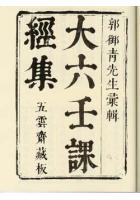 郭御青先生彙輯
大六壬課
經集
五雲齋藏板